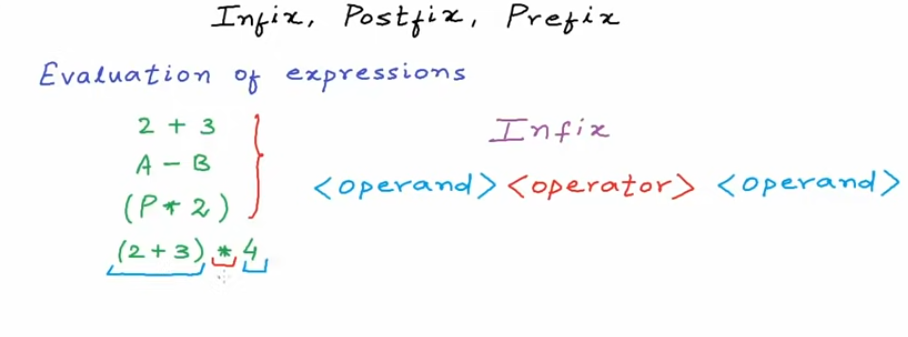 Infix, Postfix, Prefix
Evaluation of expressions
2 + 3
A - B
(P * 2)
(2 + 3) * 4
Infix
<operand> <operator> <operand>